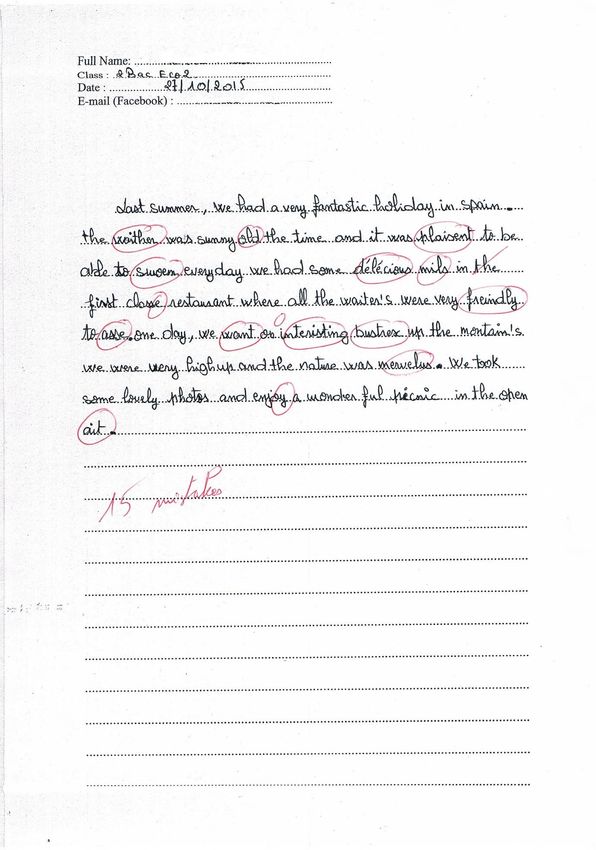 Full Name:
Class : 2 Bac Eco2
Date : 27/10/2015
E-mail (Facebook) :
Last summer, we had a very fantastic holiday in spain.
the weither was sunny old the time and it was plaisent to be
able to swoem everyday we had some délécious mils in the
first classe restaurant where all the waiter's were very freindly
to asse. one day, we want on interisting bushex up the montain's
we were very high up and the nature was mervelus. We took
some lovely photos and enjoy a wonder ful picnic in the open
ait.
15 mistakes